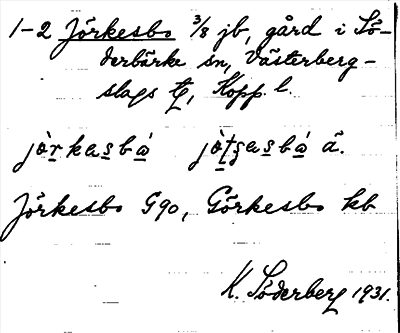 1-2 Jörkesbo 3/8 jb, gård i Sö-
derbärke sn, Västerberg-
slags tg, Kopp. l.
jòrkasbà jòtsasbà ä.
Jörkesbo G90, Görkesbo kb
K. Söderberg 1931.